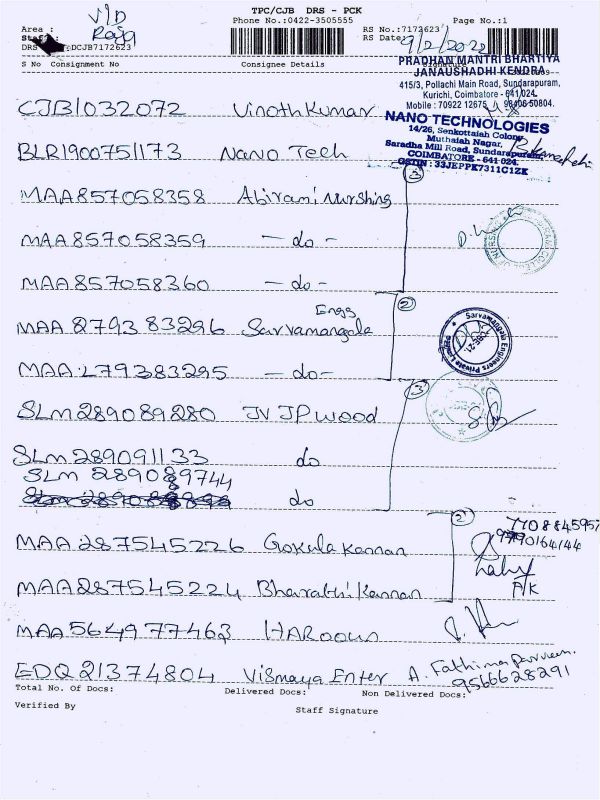 TPC/CJB DRS - PCK
V/D
Phone No.:0422-3505555
RS No.:7172623
Page No.:1
Area :
Raja
RS Date:
9/2/2022
DRS
DCJB7172623
S No Consignment No
Consignee Details
Signature
PRADHAN MANTRI BHARTIYA
JANAUSHADHI KENDRA
415/3, Pollachi Main Road, Sundarapuram,
Kurichi, Coimbatore - 641 024.
Mobile : 70922 12675, 98408 50804.
CJB1032072 Vinoth Kumar
NANO TECHNOLOGIES
14/26, Senkottaiah Colony,
Muthaiah Nagar,
Saradha Mill Road, Sundarapuram,
COIMBATORE - 641 024.
GSTIN : 33JEPPK7311C1ZK
BLR1900751173 Nano Tech
3
MAA857058358 Abirami Nurshing
MAA857058359 - do -
MAA857058360 - do -
2
Engg
MAA 879383296 Sarvamangala
Sarvamangala Engineers Private Limited
MAA 279383295 - do -
3
SLM289089280 JV JP wood
SLM289091133 do
SLM 289089744
do
2
7708845957
9790164144
MAA287545226 Gokula Kannan
MAA287545224 Bharathi Kannan
MAA564977463 HAROOUN
EDQ21374804 Vismaya Enter A. Fathima Parveen.
9566628291
Total No. Of Docs:
Delivered Docs:
Non Delivered Docs:
Verified By
Staff Signature